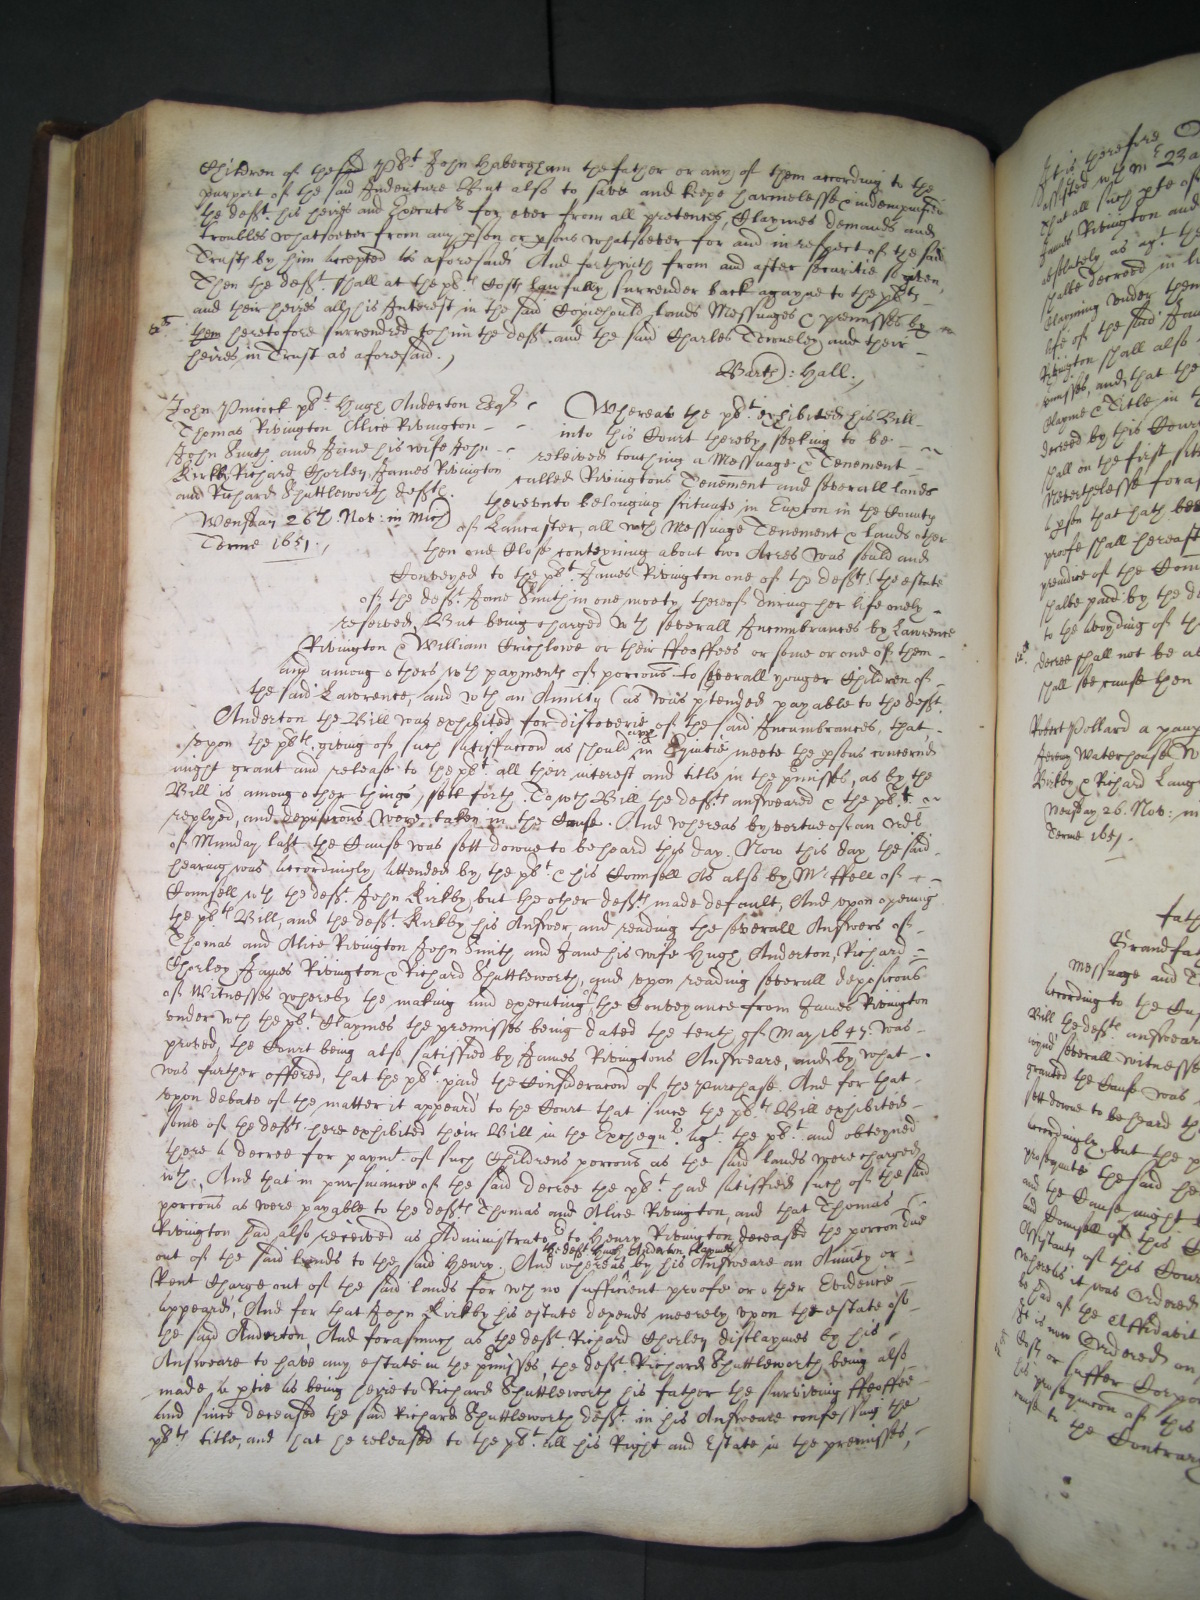 Children of the sd Plt John Habergham the father or any of them according to the
purport of the said Indenture But also to save and keepe harmelesse & indempnified
the deft. his heires and Executrs for ever from all pretences, Claymes demands and
troubles whatsoever from any pson or psons whatsoever for and in respect of the said
Trusts by him accepted as aforesaid. And forthwith from and after securitie so given,
Then the deft. shall at the plts Costs lawfully surrender back agayne to the plts
and their heires all his Interest in the said Copiehould Lands Messuages & premisses by
them heretofore surrendred to him the deft. and the said Charles Towneley and their
heires in Trust as aforesaid.
Barth: Hall.
John Pincock plt. Hugh Anderton Esqr
Thomas Rivington Alice Rivington
John Smith and Jane his wife John
Kirkby Richard Chorley James Rivington
and Richard Shuttleworth defts.
Wensday 26th. Nov: in Mich
Terme 1651.
Whereas the plt. exhibited his Bill
into this Court thereby seeking to be
releived touching a Messuage & Tenement
called Rivingtons Tenement and severall lands
thereunto belonging scituate in Euxton in the County
of Lancaster, all wch Messuage Tenement & lands other
then one Close conteyning about two Acres was sould and
Conveyed to the plt. James Rivington one of the defts (the estate
of the deft. Jane Smith in one moety thereof during her life onely
reserved, But being charged wth severall Incumbrances by Lawrence
Rivington & William Crichlowe or their ffeoffees or some or one of them
and among others wth payments of porcons to severall younger Children of
the said Lawrence, and wth an Anuity (as was ptended payable to the deft.
Anderton the Bill was exhibited for discoverie of the said Incumbrances, that
upon the plts. giving of such satisfaccon as should in Equitie meete the psons concerned
might grant and release to the plt. all their interest and title in the pmisses, as by the
Bill is among other things, sett forth. To wch Bill the defts answeared & the plt.
replyed, and deposicons were taken in the Cause. And whereas by vertue of an order
of Munday last the Cause was sett downe to be heard this day. Now this day the said
hearing was accordingly Attended by the plt. & his Counsell As also by Mr ffell of
Counsell wth the deft. John Kirkby, but the other defts made default, And upon opening
the plts Bill, and the deft. Kirkby his Answer, and reading the severall Answers of
Thomas and Alice Rivington John Smith and Jane his wife Hugh Anderton, Richard
Chorley James Rivington & Richard Shuttleworth, and upon reading severall deposicons
of Witnesses whereby the making and executing of the Conveyance from James Rivington
under wch the plt. Claymes the premisses being dated the tenth of May 1647 was
proved, the Court being also satisfied by James Rivingtons Answeare, and by what
was further offered, that the plt. paid the Consideracon of the Purchase. And for that
upon debate of the matter it appeard to the Court that since the plts Bill exhibited
some of the defts. here exhibited their Bill in the Exchequr. agt. the plt. and obteyned
there a decree for paymt. of such Childrens porcons as the said lands were charged
wth. And that in pursuance of the said decree the plt had satisfied such of the said
porcons as were payable to the defts Thomas and Alice Rivington, and that Thomas
Rivington had also received as Administrator to Henry Rivington deceased the porcon due
out of the said lands to the said Henry. And whereas the deft Hugh Anderton Claymes by his Answeare an Anuity or
Rent Charge out of the said lands for wch no sufficient proofe or other Evidence
appeard, And for that John Kirkby his estate depends meerely upon the estate of
the said Anderton, And forasmuch as the deft. Richard Chorley disclaymes by his
Answeare to have any estate in the pmisses, the deft Richard Shuttleworth being also
made a ptie as being heire to Richard Shuttleworth his father the surviving ffeoffee
and since deceased the said Richard Shuttleworth deft. in his Answeare confessing the
plts title, and that he released to the plt. all his Right and Estate in the premisses,
It is therefore
that all such pte of
James Rivington and
absolutely as agt. the
shalbe decreed in
Clayming under them
life of the said
Rivington shall also
pmisses, and that the
Clayme & Title in th
decreed by this Cour
shall on the first
Nevertheless foras
pson that hath
proofe shall hereaft
pjudice of the Com
shalbe paid by the d
to the avoyding of th
decree shall not be a
shall see cause then
Robert Pollard a paup
Jeremy Waterhouse
Birkby & Richard Lang
Wensday 26. Nov: in
Terme 1651.
Grandfat
Messuage and T
According to the
Bill the defts. answear
severall witnesse
granted the Cause was
sett downe to be heard th
Accordingly, but the p
prosequute the said he
and the Cause might
and Counsell of this C
Assistants of this Cour
Whereas it was Ordered
be had of the Affidavit
It is now Ordered on
Costs or suffer Corpor
his prosequucon of this
cause to the Contrary